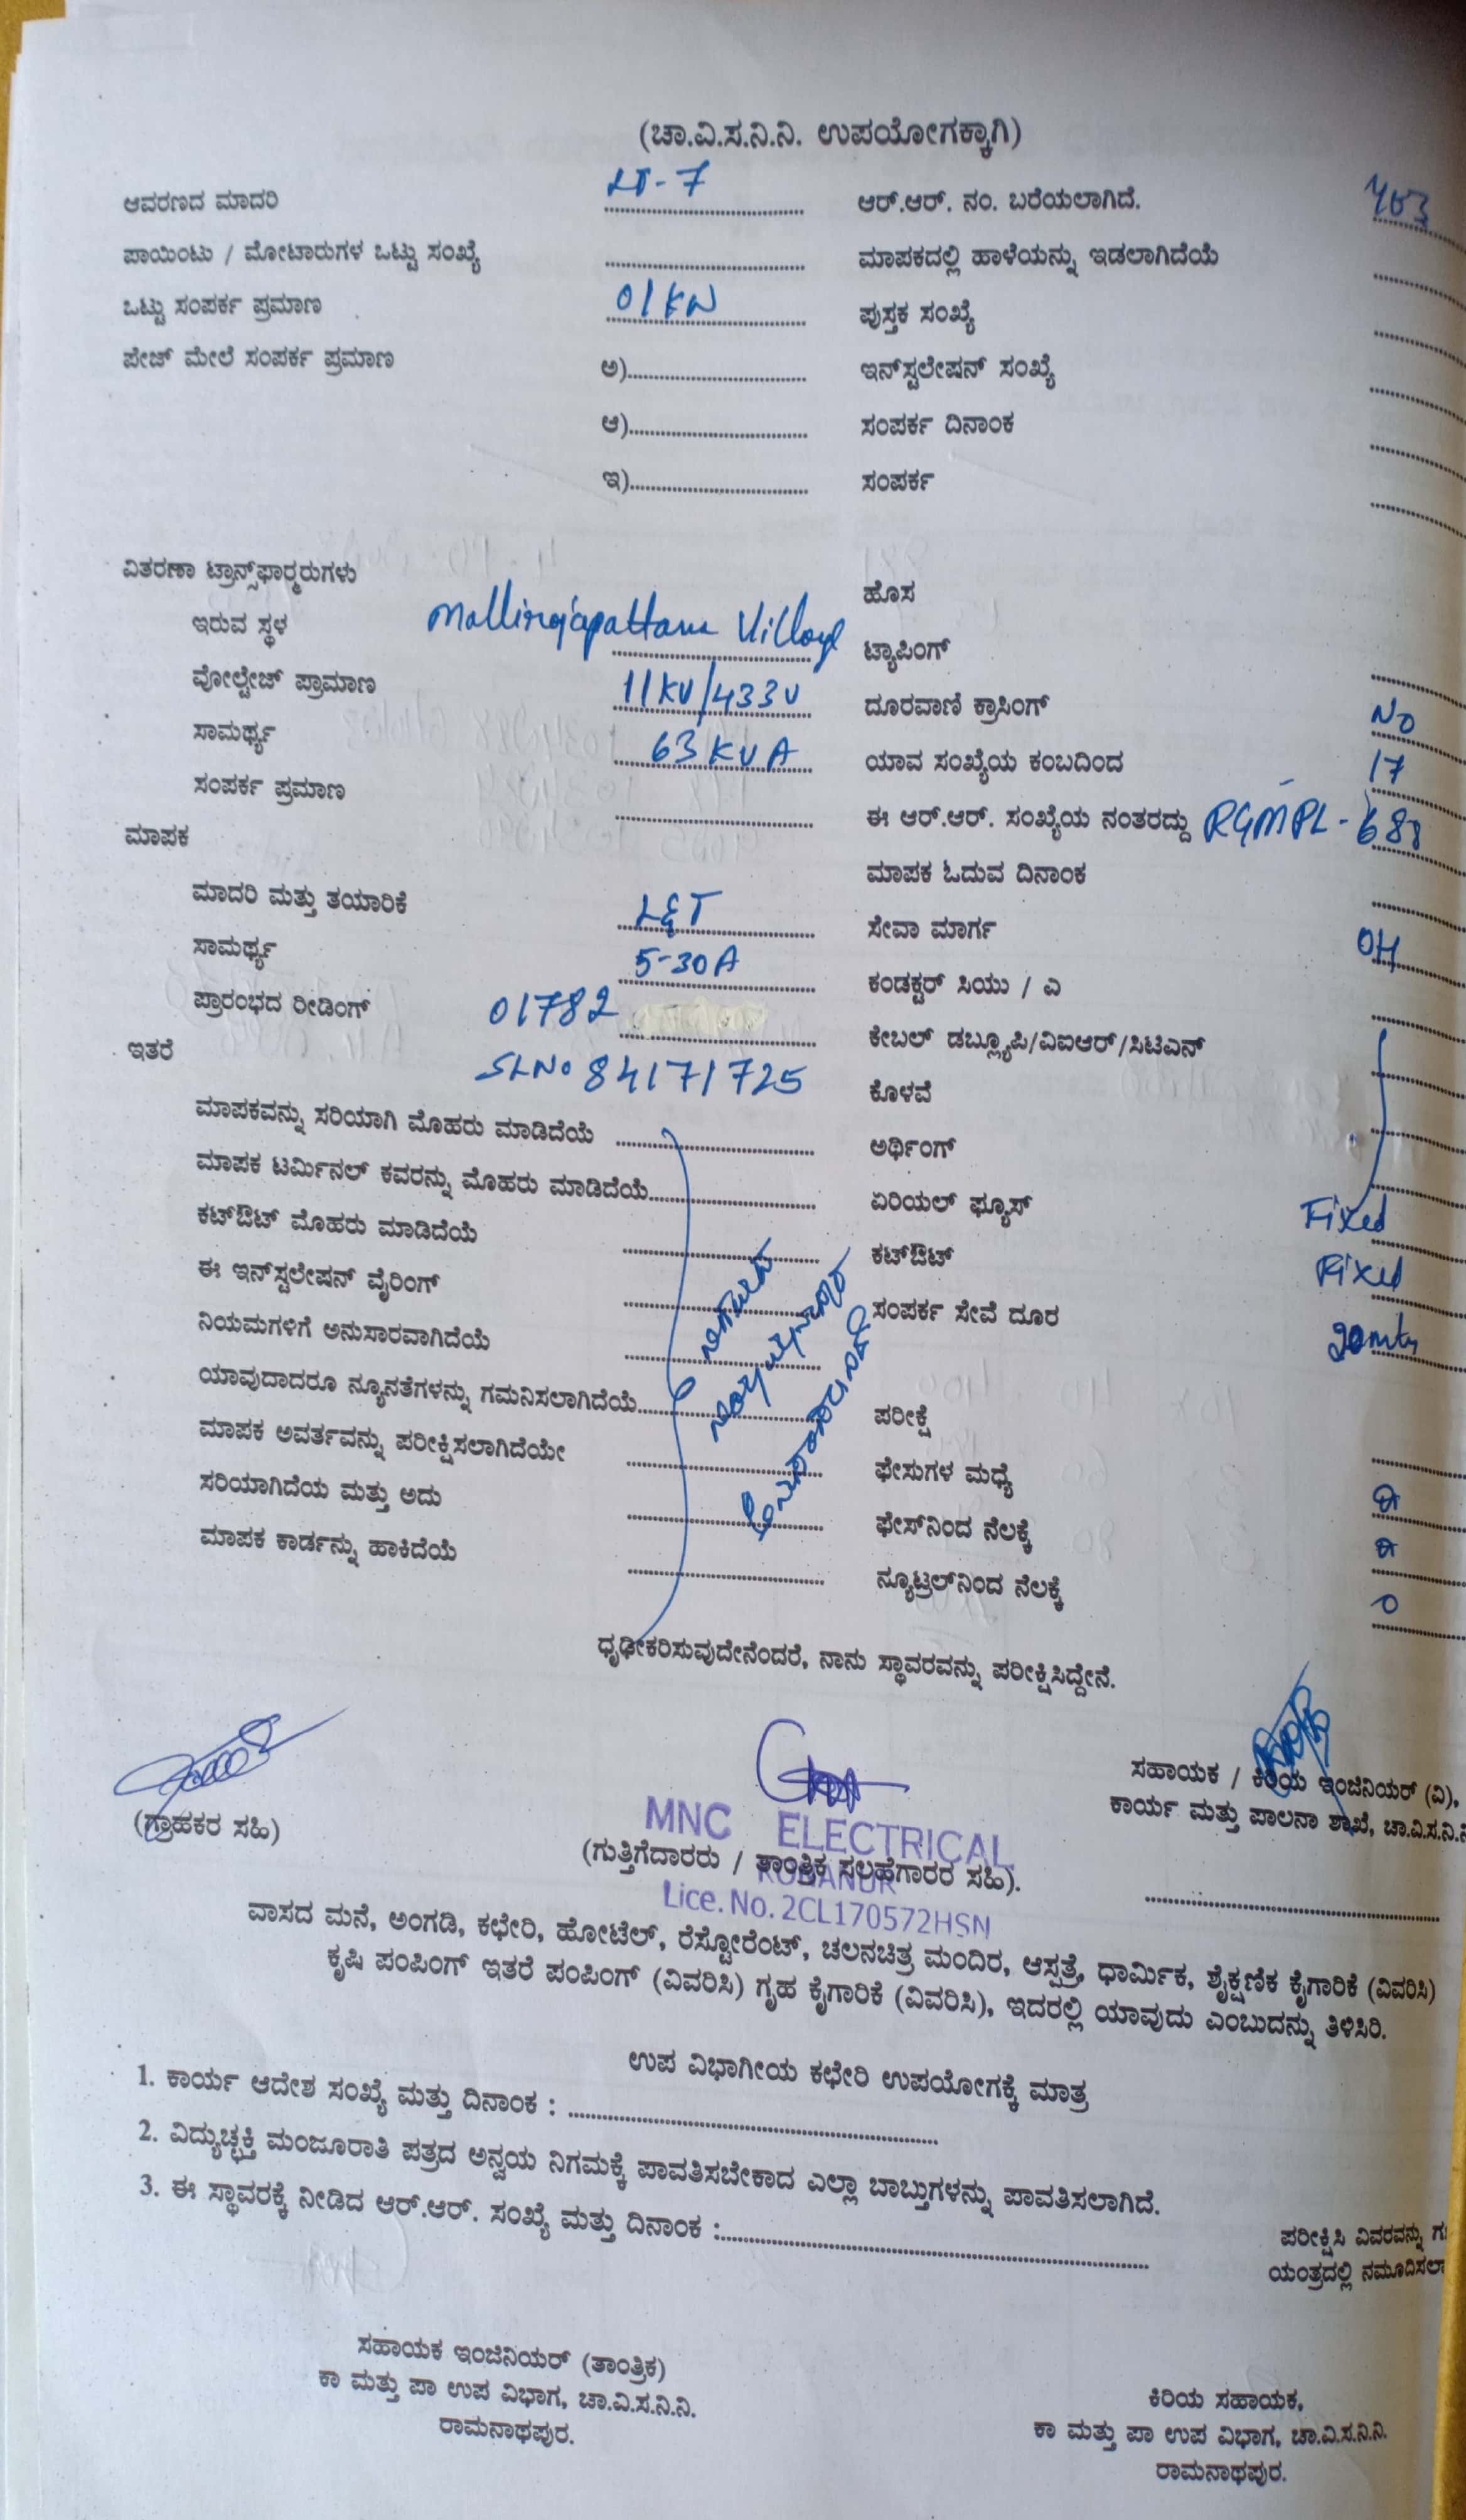 (ಚಾ.ವಿ.ಸ.ನಿ.ನಿ. ಉಪಯೋಗಕ್ಕಾಗಿ)
ಆವರಣದ ಮಾದರಿ LT-7 ಆರ್.ಆರ್. ನಂ. ಬರೆಯಲಾಗಿದೆ.
ಪಾಯಿಂಟು / ಮೋಟಾರುಗಳ ಒಟ್ಟು ಸಂಖ್ಯೆ ಮಾಪಕದಲ್ಲಿ ಹಾಳೆಯನ್ನು ಇಡಲಾಗಿದೆಯೆ
ಒಟ್ಟು ಸಂಪರ್ಕ ಪ್ರಮಾಣ 01KW ಪುಸ್ತಕ ಸಂಖ್ಯೆ
ಪೇಜ್ ಮೇಲೆ ಸಂಪರ್ಕ ಪ್ರಮಾಣ ಅ) ಇನ್‌ಸ್ಟಲೇಷನ್ ಸಂಖ್ಯೆ
ಆ) ಸಂಪರ್ಕ ದಿನಾಂಕ
ಇ) ಸಂಪರ್ಕ
ವಿತರಣಾ ಟ್ರಾನ್ಸ್‌ಫಾರ್‍ಮರುಗಳು ಹೊಸ
ಇರುವ ಸ್ಥಳ Mallirajapattana Village ಟ್ಯಾಪಿಂಗ್
ವೋಲ್ಟೇಜ್ ಪ್ರಾಮಾಣ 11KV/433V ದೂರವಾಣಿ ಕ್ರಾಸಿಂಗ್ NO
ಸಾಮರ್ಥ್ಯ 63KVA ಯಾವ ಸಂಖ್ಯೆಯ ಕಂಬದಿಂದ 17
ಸಂಪರ್ಕ ಪ್ರಮಾಣ ಈ ಆರ್.ಆರ್. ಸಂಖ್ಯೆಯ ನಂತರದ್ದು RGMPL-688
ಮಾಪಕ ಮಾಪಕ ಓದುವ ದಿನಾಂಕ
ಮಾದರಿ ಮತ್ತು ತಯಾರಿಕೆ L&T ಸೇವಾ ಮಾರ್ಗ OH
ಸಾಮರ್ಥ್ಯ 5-30A ಕಂಡಕ್ಟರ್ ಸಿಯು / ಎ
ಪ್ರಾರಂಭದ ರೀಡಿಂಗ್ 01782 ಕೇಬಲ್ ಡಬ್ಲ್ಯೂಪಿ/ವಿಐಆರ್/ಸಿಟಿಎನ್
ಇತರೆ SLNo 84171725 ಕೊಳವೆ
ಮಾಪಕವನ್ನು ಸರಿಯಾಗಿ ಮೊಹರು ಮಾಡಿದೆಯೆ ಅರ್ಥಿಂಗ್
ಮಾಪಕ ಟರ್ಮಿನಲ್ ಕವರನ್ನು ಮೊಹರು ಮಾಡಿದೆಯೆ ಏರಿಯಲ್ ಫ್ಯೂಸ್ Fixed
ಕಟ್‌ಔಟ್ ಮೊಹರು ಮಾಡಿದೆಯೆ ಕಟ್‌ಔಟ್ Fixed
ಈ ಇನ್‌ಸ್ಟಲೇಷನ್ ವೈರಿಂಗ್ ಸಂಪರ್ಕ ಸೇವೆ ದೂರ 20mts
ನಿಯಮಗಳಿಗೆ ಅನುಸಾರವಾಗಿದೆಯೆ
ಯಾವುದಾದರೂ ನ್ಯೂನತೆಗಳನ್ನು ಗಮನಿಸಲಾಗಿದೆಯೆ ಪರೀಕ್ಷೆ
ಮಾಪಕ ಅವರ್ತವನ್ನು ಪರೀಕ್ಷಿಸಲಾಗಿದೆಯೇ ಫೇಸುಗಳ ಮಧ್ಯೆ
ಸರಿಯಾಗಿದೆಯ ಮತ್ತು ಅದು ಫೇಸ್‌ನಿಂದ ನೆಲಕ್ಕೆ
ಮಾಪಕ ಕಾರ್ಡನ್ನು ಹಾಕಿದೆಯೆ ನ್ಯೂಟ್ರಲ್‌ನಿಂದ ನೆಲಕ್ಕೆ
ಧೃಢೀಕರಿಸುವುದೇನೆಂದರೆ, ನಾನು ಸ್ಥಾವರವನ್ನು ಪರೀಕ್ಷಿಸಿದ್ದೇನೆ.
(ಗ್ರಾಹಕರ ಸಹಿ)
MNC ELECTRICAL
(ಗುತ್ತಿಗೆದಾರರು / ತಾಂತ್ರಿಕ ಸಲಹೆಗಾರರ ಸಹಿ).
Lice. No. 2CL170572HSN
ಸಹಾಯಕ / ಕಿರಿಯ ಇಂಜಿನಿಯರ್ (ವಿ),
ಕಾರ್ಯ ಮತ್ತು ಪಾಲನಾ ಶಾಖೆ, ಚಾ.ವಿ.ಸ.ನಿ.ನಿ
ವಾಸದ ಮನೆ, ಅಂಗಡಿ, ಕಛೇರಿ, ಹೋಟೆಲ್, ರೆಸ್ಟೋರೆಂಟ್, ಚಲನಚಿತ್ರ ಮಂದಿರ, ಆಸ್ಪತ್ರೆ, ಧಾರ್ಮಿಕ, ಶೈಕ್ಷಣಿಕ ಕೈಗಾರಿಕೆ (ವಿವರಿಸಿ)
ಕೃಷಿ ಪಂಪಿಂಗ್ ಇತರೆ ಪಂಪಿಂಗ್ (ವಿವರಿಸಿ) ಗೃಹ ಕೈಗಾರಿಕೆ (ವಿವರಿಸಿ), ಇದರಲ್ಲಿ ಯಾವುದು ಎಂಬುದನ್ನು ತಿಳಿಸಿರಿ.
ಉಪ ವಿಭಾಗೀಯ ಕಛೇರಿ ಉಪಯೋಗಕ್ಕೆ ಮಾತ್ರ
1. ಕಾರ್ಯ ಆದೇಶ ಸಂಖ್ಯೆ ಮತ್ತು ದಿನಾಂಕ :
2. ವಿದ್ಯುಚ್ಛಕ್ತಿ ಮಂಜೂರಾತಿ ಪತ್ರದ ಅನ್ವಯ ನಿಗಮಕ್ಕೆ ಪಾವತಿಸಬೇಕಾದ ಎಲ್ಲಾ ಬಾಬ್ತುಗಳನ್ನು ಪಾವತಿಸಲಾಗಿದೆ.
3. ಈ ಸ್ಥಾವರಕ್ಕೆ ನೀಡಿದ ಆರ್.ಆರ್. ಸಂಖ್ಯೆ ಮತ್ತು ದಿನಾಂಕ :
ಪರೀಕ್ಷಿಸಿ ವಿವರವನ್ನು
ಯಂತ್ರದಲ್ಲಿ ನಮೂದಿಸಲಾ
ಸಹಾಯಕ ಇಂಜಿನಿಯರ್ (ತಾಂತ್ರಿಕ)
ಕಾ ಮತ್ತು ಪಾ ಉಪ ವಿಭಾಗ, ಚಾ.ವಿ.ಸ.ನಿ.ನಿ.
ರಾಮನಾಥಪುರ.
ಕಿರಿಯ ಸಹಾಯಕ,
ಕಾ ಮತ್ತು ಪಾ ಉಪ ವಿಭಾಗ, ಚಾ.ವಿ.ಸ.ನಿ.ನಿ.
ರಾಮನಾಥಪುರ.